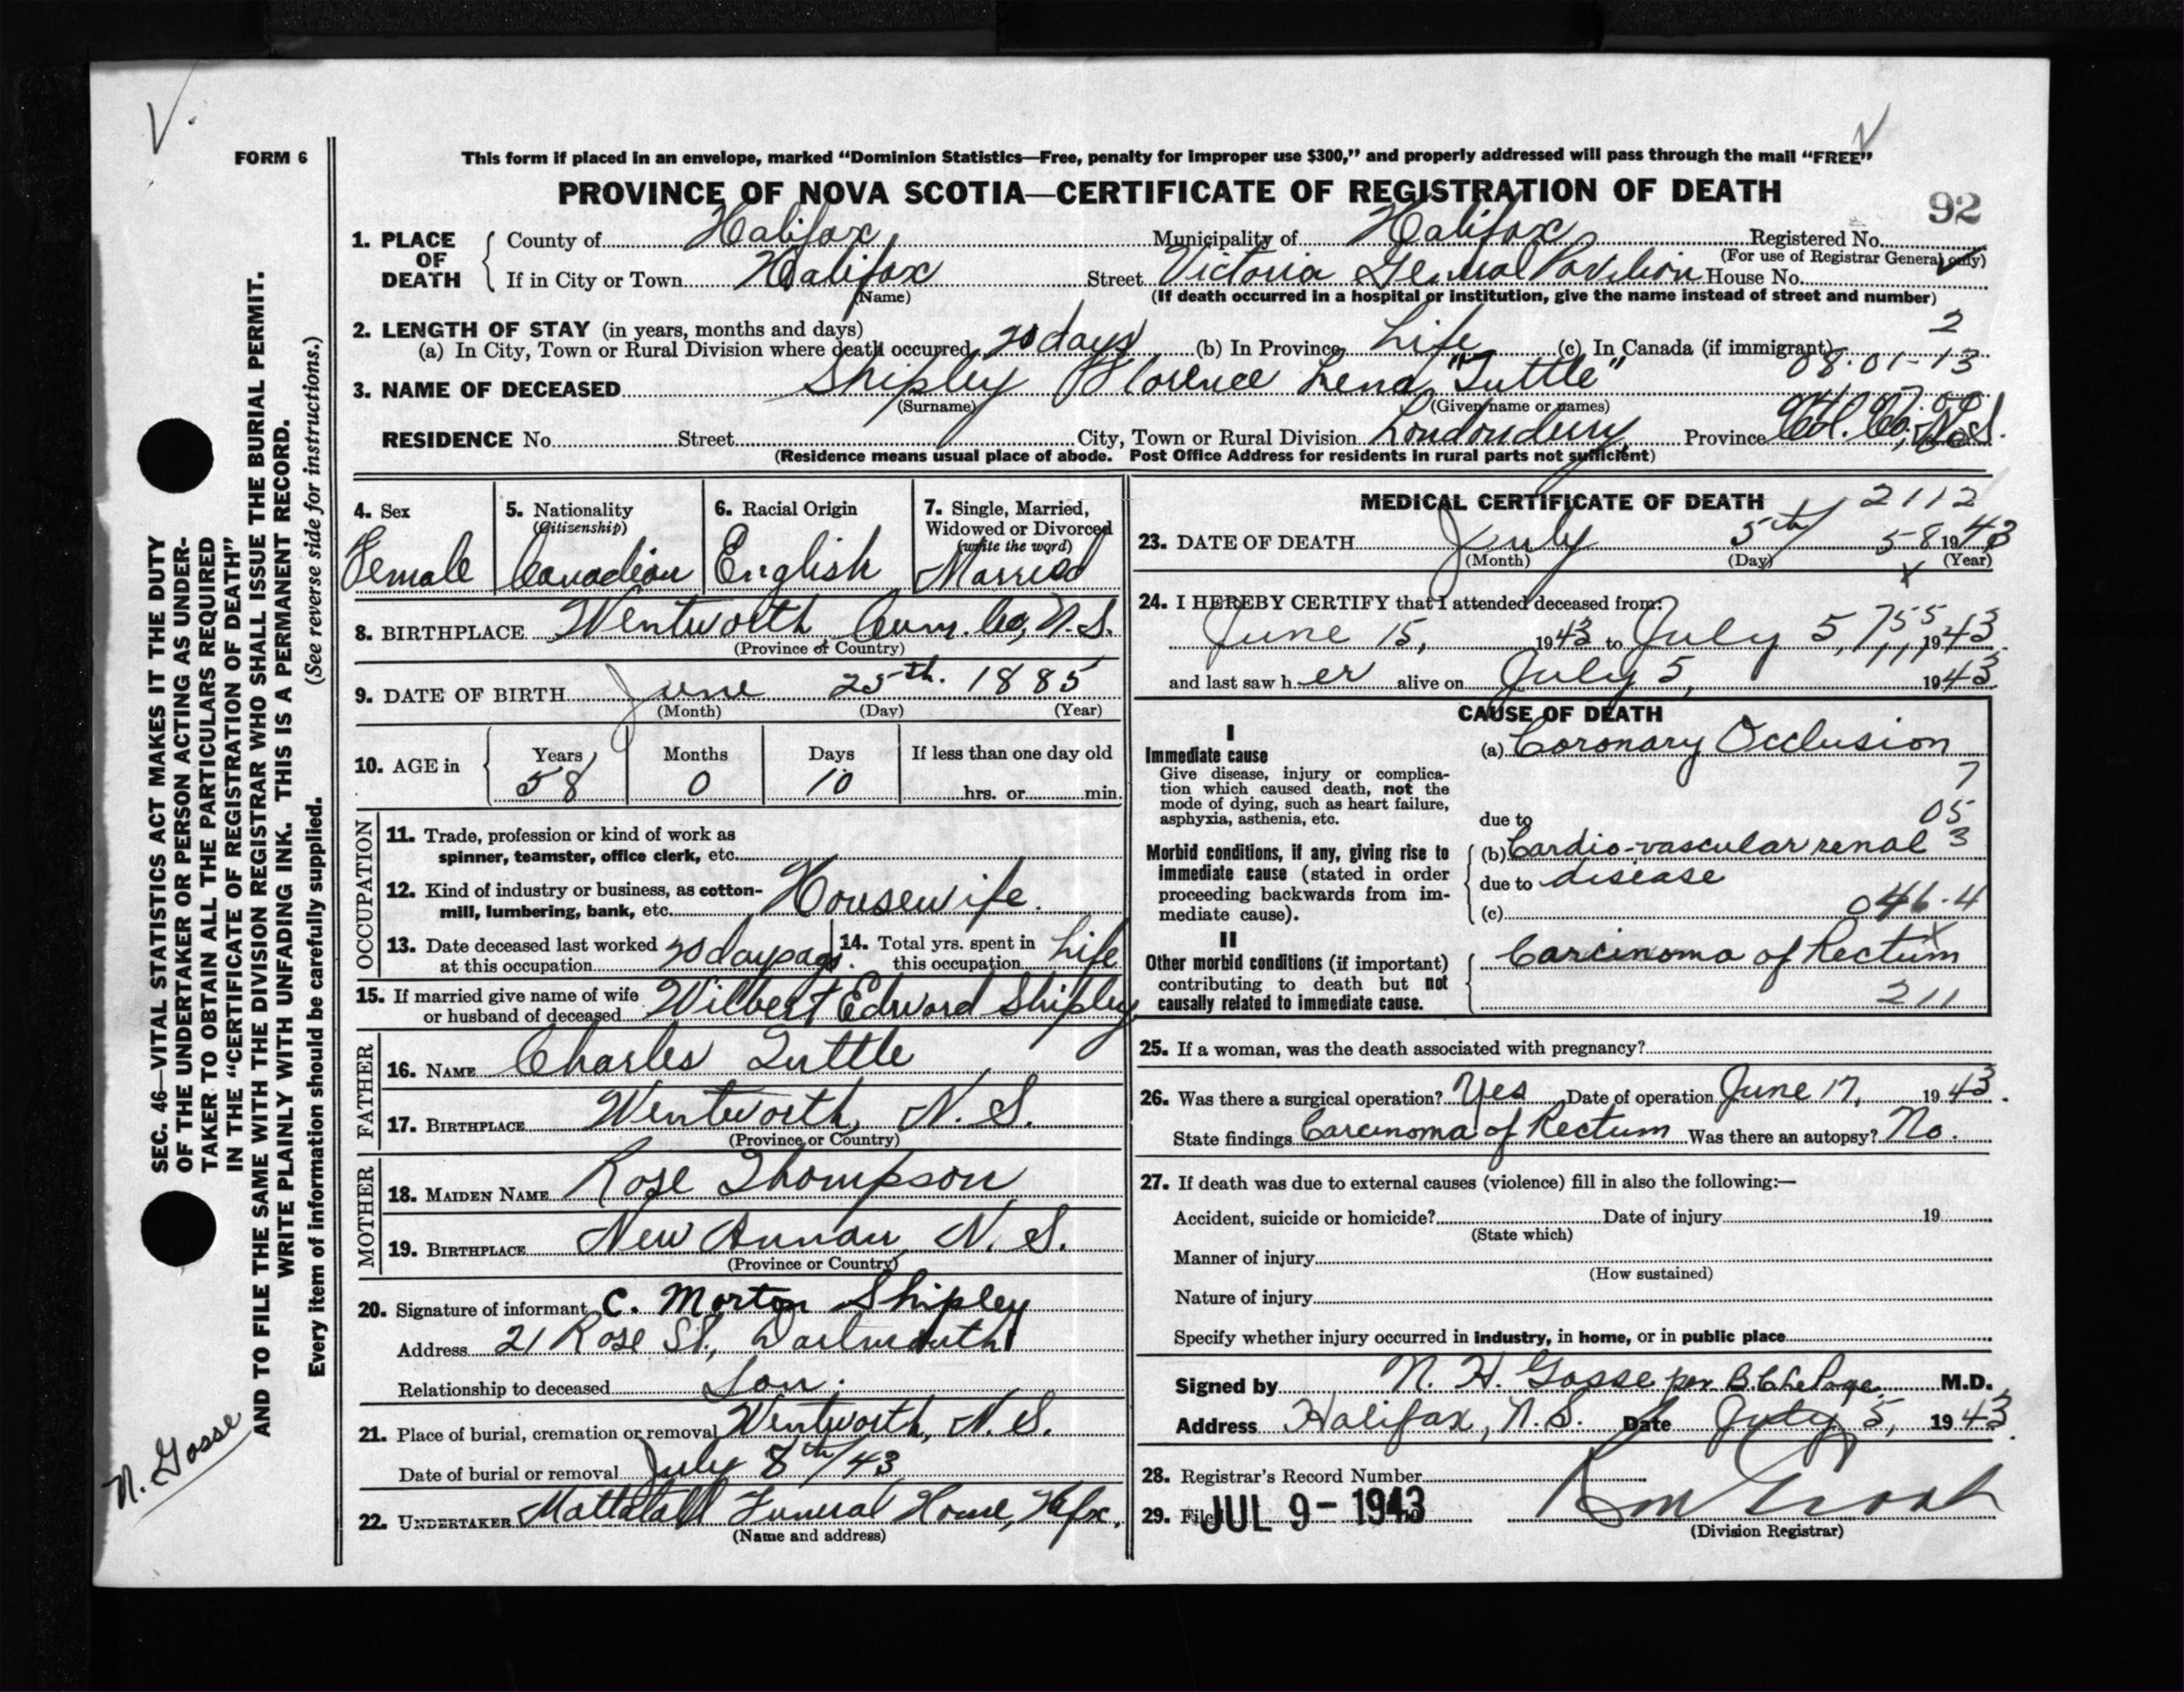 V.
FORM 6
This form if placed in an envelope, marked “Dominion Statistics—Free, penalty for improper use $300,” and properly addressed will pass through the mail “FREE”
PROVINCE OF NOVA SCOTIA—CERTIFICATE OF REGISTRATION OF DEATH
92
1. PLACE OF DEATH County of Halifax Municipality of Halifax Registered No.
(For use of Registrar General only)
If in City or Town Halifax Street Victoria General Pavilion House No.
(Name) (If death occurred in a hospital or institution, give the name instead of street and number)
2. LENGTH OF STAY (in years, months and days) 2
(a) In City, Town or Rural Division where death occurred 20 days (b) In Province Life (c) In Canada (if immigrant)
08.01-13
3. NAME OF DECEASED Shipley Florence Lena "Tuttle"
(Surname) (Given name or names)
RESIDENCE No. Street City, Town or Rural Division Londonderry Province Col. Co., N.S.
(Residence means usual place of abode. Post Office Address for residents in rural parts not sufficient)
4. Sex Female
5. Nationality (Citizenship) Canadian
6. Racial Origin English
7. Single, Married, Widowed or Divorced (write the word) Married
8. BIRTHPLACE Wentworth, Cum. Co, N.S.
(Province or Country)
9. DATE OF BIRTH June 25th. 1885
(Month) (Day) (Year)
10. AGE in Years 58 Months 0 Days 10 If less than one day old hrs. or min.
OCCUPATION
11. Trade, profession or kind of work as
spinner, teamster, office clerk, etc.
12. Kind of industry or business, as cotton-
mill, lumbering, bank, etc. Housewife.
13. Date deceased last worked at this occupation 20 days ago. 14. Total yrs. spent in this occupation Life
15. If married give name of wife
or husband of deceased Wilbert Edward Shipley
FATHER
16. NAME Charles Tuttle
17. BIRTHPLACE Wentworth, N.S.
(Province or Country)
MOTHER
18. MAIDEN NAME Rose Thompson
19. BIRTHPLACE New Annan, N.S.
(Province or Country)
20. Signature of informant C. Morton Shipley
Address 21 Rose St., Dartmouth
Relationship to deceased Son.
21. Place of burial, cremation or removal Wentworth, N.S.
Date of burial or removal July 8th/43
22. UNDERTAKER Mattatall Funeral Home, Hfx.
(Name and address)
MEDICAL CERTIFICATE OF DEATH 2112
23. DATE OF DEATH July 5th 58 1943
(Month) (Day) (Year)
x
24. I HEREBY CERTIFY that I attended deceased from:
June 15, 1943 to July 5, 1943
755
and last saw her alive on July 5, 1943
CAUSE OF DEATH
I
Immediate cause (a) Coronary Occlusion
Give disease, injury or complica-
tion which caused death, not the
mode of dying, such as heart failure,
asphyxia, asthenia, etc. due to
7
05
3
Morbid conditions, if any, giving rise to
immediate cause (stated in order
proceeding backwards from im-
mediate cause).
(b) Cardio-vascular renal
due to disease
(c) 046.4
x
II
Other morbid conditions (if important)
contributing to death but not
causally related to immediate cause.
Carcinoma of Rectum
211
25. If a woman, was the death associated with pregnancy?
26. Was there a surgical operation? Yes Date of operation June 17, 1943.
State findings Carcinoma of Rectum Was there an autopsy? No.
27. If death was due to external causes (violence) fill in also the following:—
Accident, suicide or homicide? Date of injury 19
(State which)
Manner of injury
(How sustained)
Nature of injury
Specify whether injury occurred in industry, in home, or in public place
Signed by N. H. Gosse per M.D.
Address Halifax, N.S. Date July 5, 1943.
28. Registrar's Record Number
29. Filed JUL 9 - 1943
(Division Registrar)
SEC. 46—VITAL STATISTICS ACT MAKES IT THE DUTY
OF THE UNDERTAKER OR PERSON ACTING AS UNDER-
TAKER TO OBTAIN ALL THE PARTICULARS REQUIRED
IN THE “CERTIFICATE OF REGISTRATION OF DEATH”
AND TO FILE THE SAME WITH THE DIVISION REGISTRAR WHO SHALL ISSUE THE BURIAL PERMIT.
WRITE PLAINLY WITH UNFADING INK. THIS IS A PERMANENT RECORD.
Every item of information should be carefully supplied. (See reverse side for instructions.)
N. Gosse